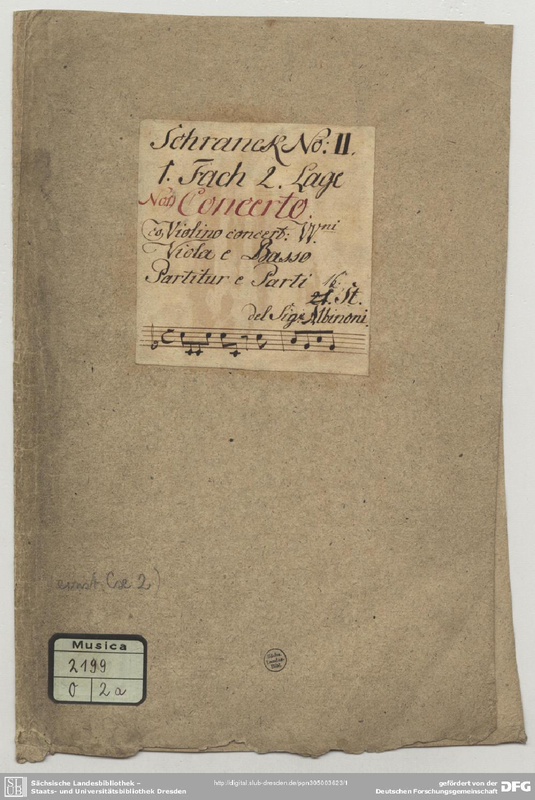 Schranck No: II.
1. Fach 2. Lage
Concerto.
co Violino concert: VV.ni
Viola e Basso
Partitur e Parti
St.
del Sigr. Albinoni.
Cx 2)
Musica
2199
O 2a
Sächsische Landesbibliothek –
Staats- und Universitätsbibliothek Dresden
gefördert von der
Deutschen Forschungsgemeinschaft
DFG